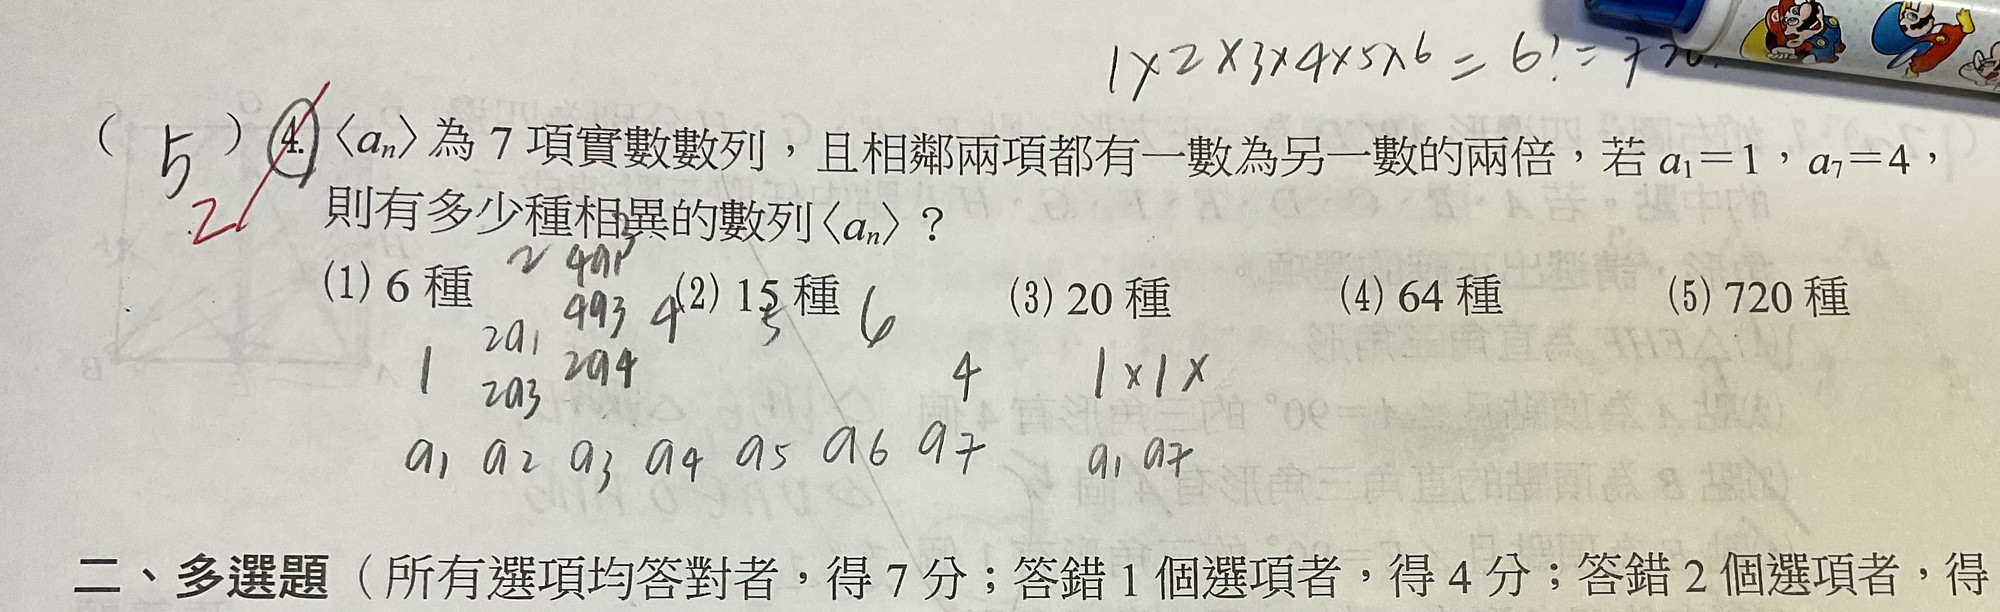 1×2×3×4×5×6=6!=720
( 5 ) 4. 〈aₙ〉為 7 項實數數列，且相鄰兩項都有一數為另一數的兩倍，若 a₁＝1，a₇＝4，
2
則有多少種相異的數列〈aₙ〉？
2 4a1 3
(1) 6 種 (2) 15 種 (3) 20 種 (4) 64 種 (5) 720 種
4a3 4 5 6
1 2a1 2a4 4 1×1×
2a3
a1 a2 a3 a4 a5 a6 a7 a1 a7
二、多選題（所有選項均答對者，得 7 分；答錯 1 個選項者，得 4 分；答錯 2 個選項者，得